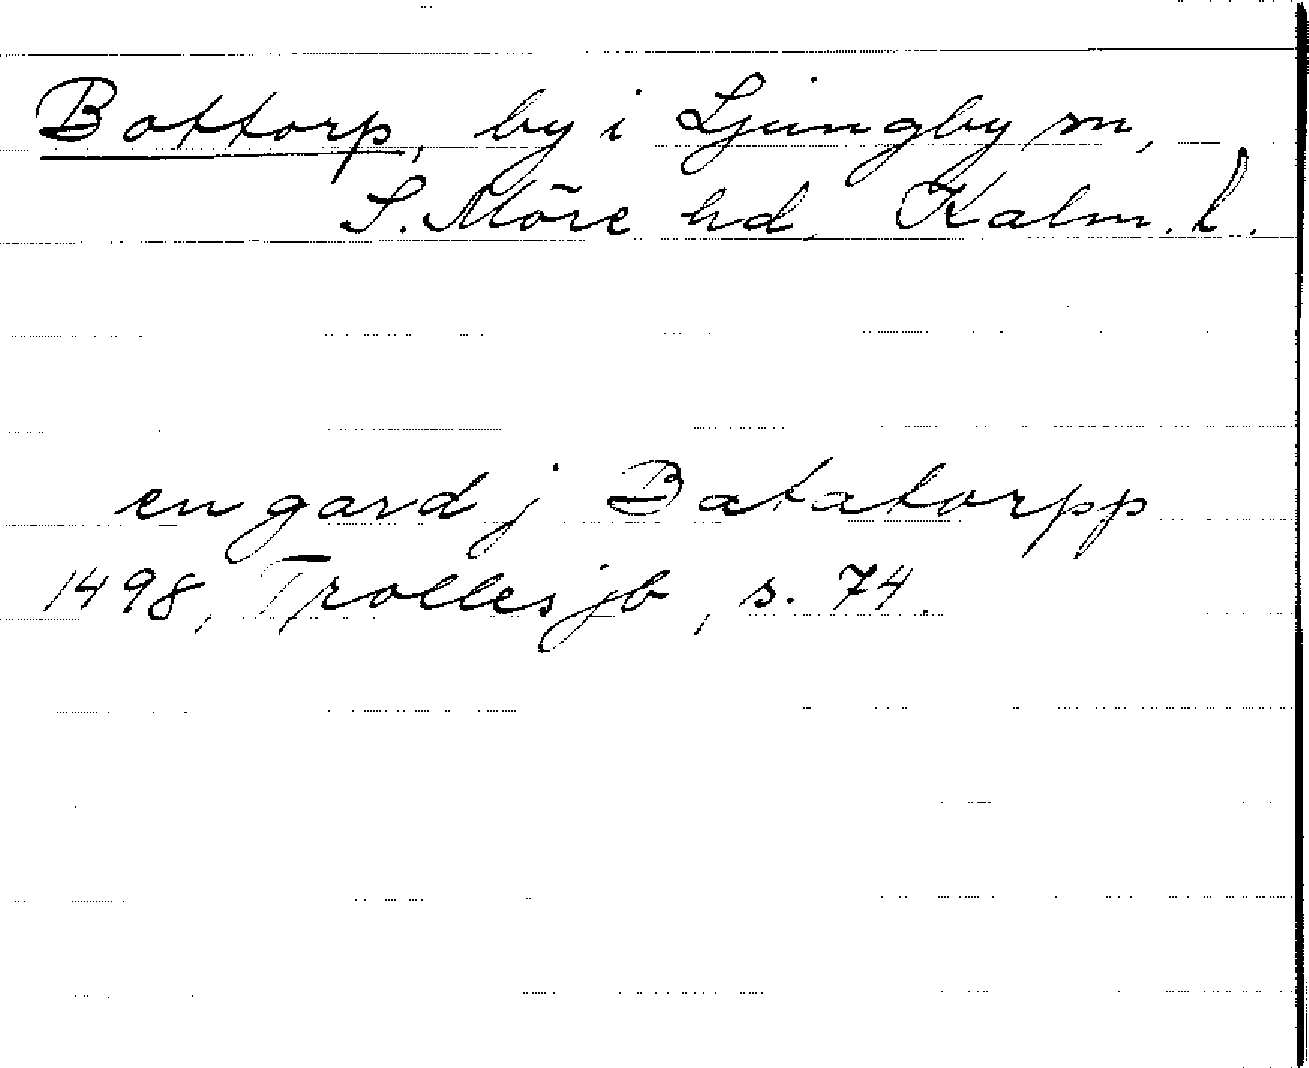 Bottorp, by i Ljungby sn,
S. Möre hd, Kalm. l.
en gard j Batatorpp
1498, Trolles jb, s. 74.